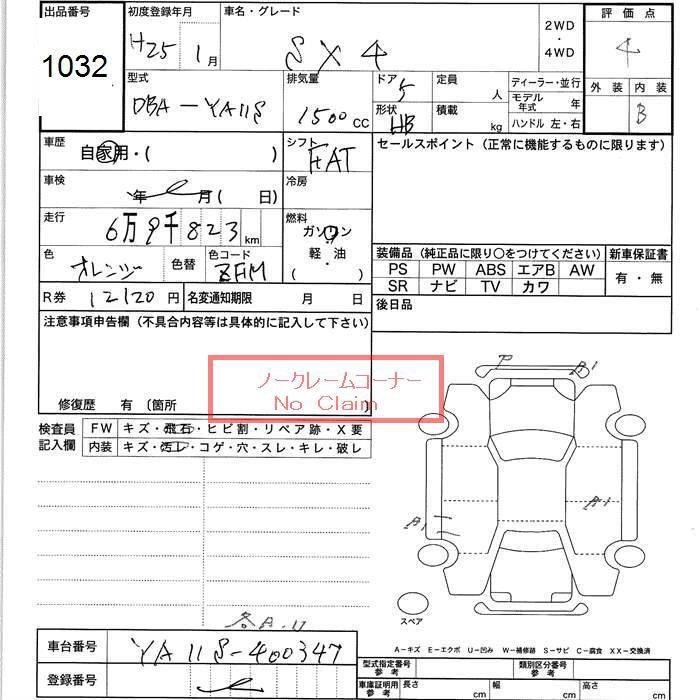 出品番号 初度登録年月 車名・グレード 評価点
1032 H25年 1月 SX4 2WD・4WD 4
型式 排気量 ドア 5 定員 人 ディーラー・並行 外装 内装
DBA-YA11S 1500cc 形状 HB 積載 kg モデル年式 年 B
ハンドル 左・右
車歴 自家用・( ) シフト FAT セールスポイント(正常に機能するものに限ります)
車検 年 月( 日) 冷房
走行 6万9千823km 燃料 ガソリン
色 オレンジ 色替 色コード ZFM 軽油 ( )
装備品(純正品に限り○をつけてください) 新車保証書
PS PW ABS エアB AW 有・無
SR ナビ TV カワ
R券 12120円 名変通知期限 月 日 後日品
注意事項申告欄(不具合内容等は具体的に記入して下さい)
ノークレームコーナー
No Claim
修復歴 有 (箇所 )
検査員記入欄 FW キズ・飛石・ヒビ割・リペア跡・X要
内装 キズ・汚レ・コゲ・穴・スレ・キレ・破レ
P A1
A1 A1
スペア
A-キズ E-エクボ U-凹み W-補修跡 S-サビ C-腐食 XX-交換済
車台番号 YA11S-400347
登録番号
型式指定番号 参考 類別区分番号 参考
車庫証明用 参考 長さ cm 幅 cm 高さ cm